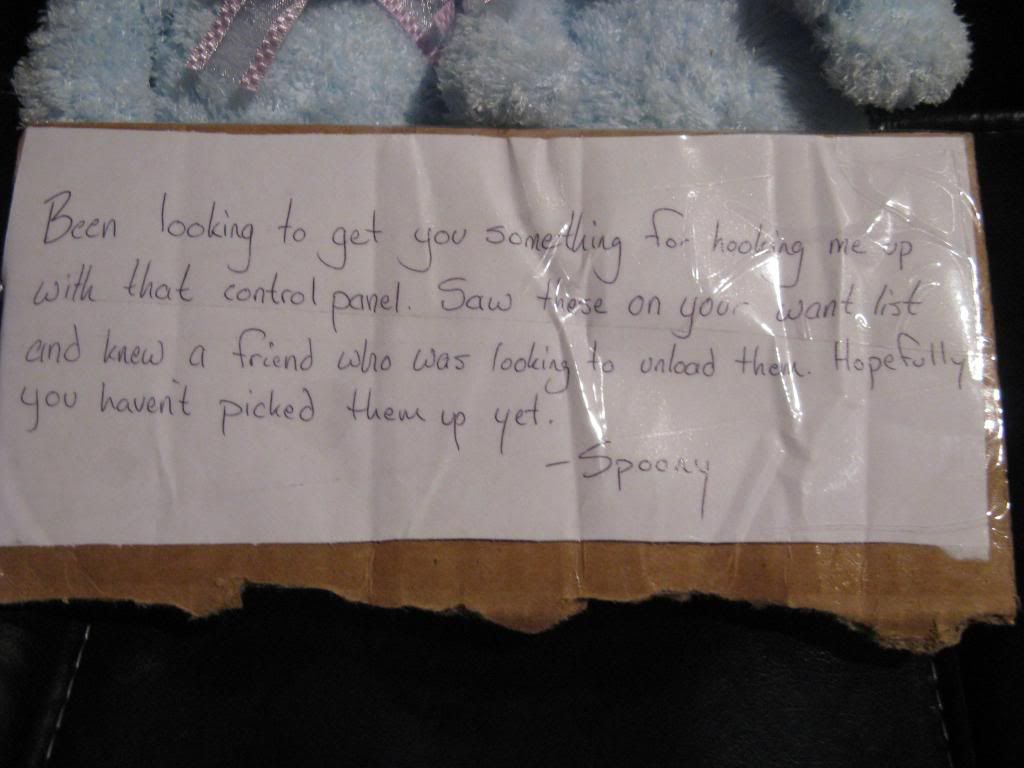 Been looking to get you something for hooking me up
with that control panel. Saw these on your want list
and knew a friend who was looking to unload them. Hopefully
you haven't picked them up yet.
-Spoony